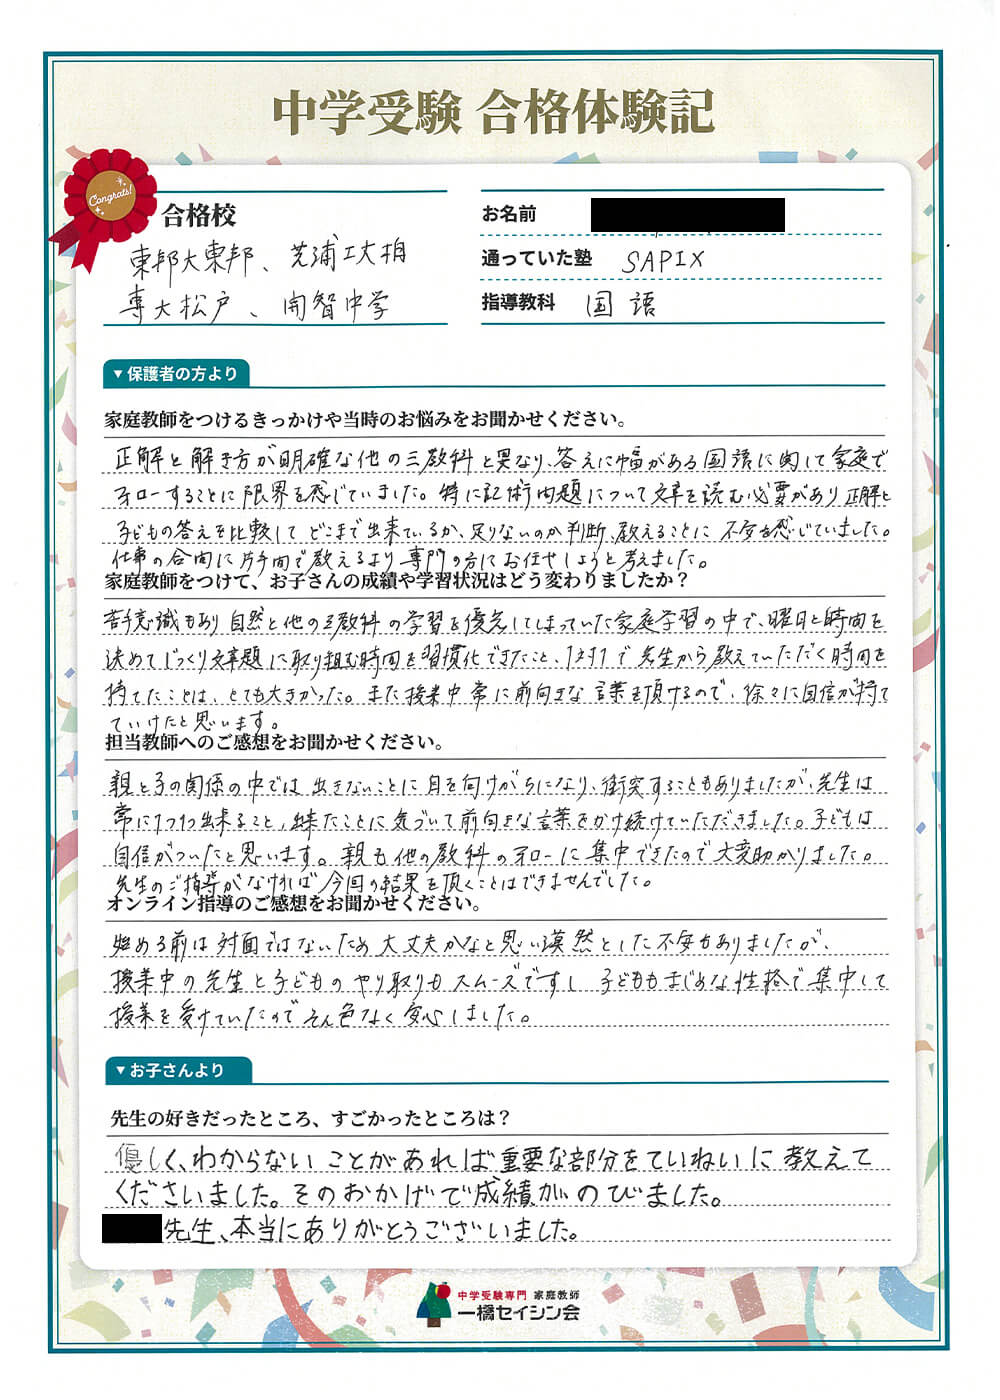 中学受験 合格体験記
Congrats!
合格校
東邦大東邦、芝浦工大柏
専大松戸、開智中学
お名前
通っていた塾 SAPIX
指導教科 国語
▼保護者の方より
家庭教師をつけるきっかけや当時のお悩みをお聞かせください。
正解と解き方が明確な他の三教科と異なり、答えに幅がある国語に関して家庭で
フォローすることに限界を感じていました。特に記術問題について文章を読む必要があり正解と
子どもの答えを比較してどこまで出来ているか、足りないのか判断、教えることに不安を感じていました。
仕事の合間に片手間で教えるより専門の方にお任せしようと考えました。
家庭教師をつけて、お子さんの成績や学習状況はどう変わりましたか？
苦手意識もあり自然と他の三教科の学習を優先してしまっていた家庭学習の中で、曜日と時間を
決めてじっくり文章題に取り組む時間を習慣化できたこと、1対1で先生から教えていただく時間を
持てたことは、とても大きかった。また授業中常に前向きな言葉を頂けるので、徐々に自信が持て
ていけたと思います。
担当教師へのご感想をお聞かせください。
親と子の関係の中では出きないことに目を向けがちになり、衝突することもありましたが、先生は
常に1つ1つ出来ること、出来たことに気づいて前向きな言葉をかけ続けていただきました。子どもは
自信がついたと思います。親も他の教科のフォローに集中できたので大変助かりました。
先生のご指導がなければ今回の結果を頂くことはできませんでした。
オンライン指導のご感想をお聞かせください。
始める前は対面ではないため大丈夫かなと思い漠然とした不安もありましたが、
授業中の先生と子どものやり取りもスムーズですし子どももまじめな性格で集中して
授業を受けていたのでそん色なく安心しました。
▼お子さんより
先生の好きだったところ、すごかったところは？
優しく、わからないことがあれば重要な部分をていねいに教えて
くださいました。そのおかげで成績がのびました。
先生、本当にありがとうございました。
中学受験専門 家庭教師
一橋セイシン会